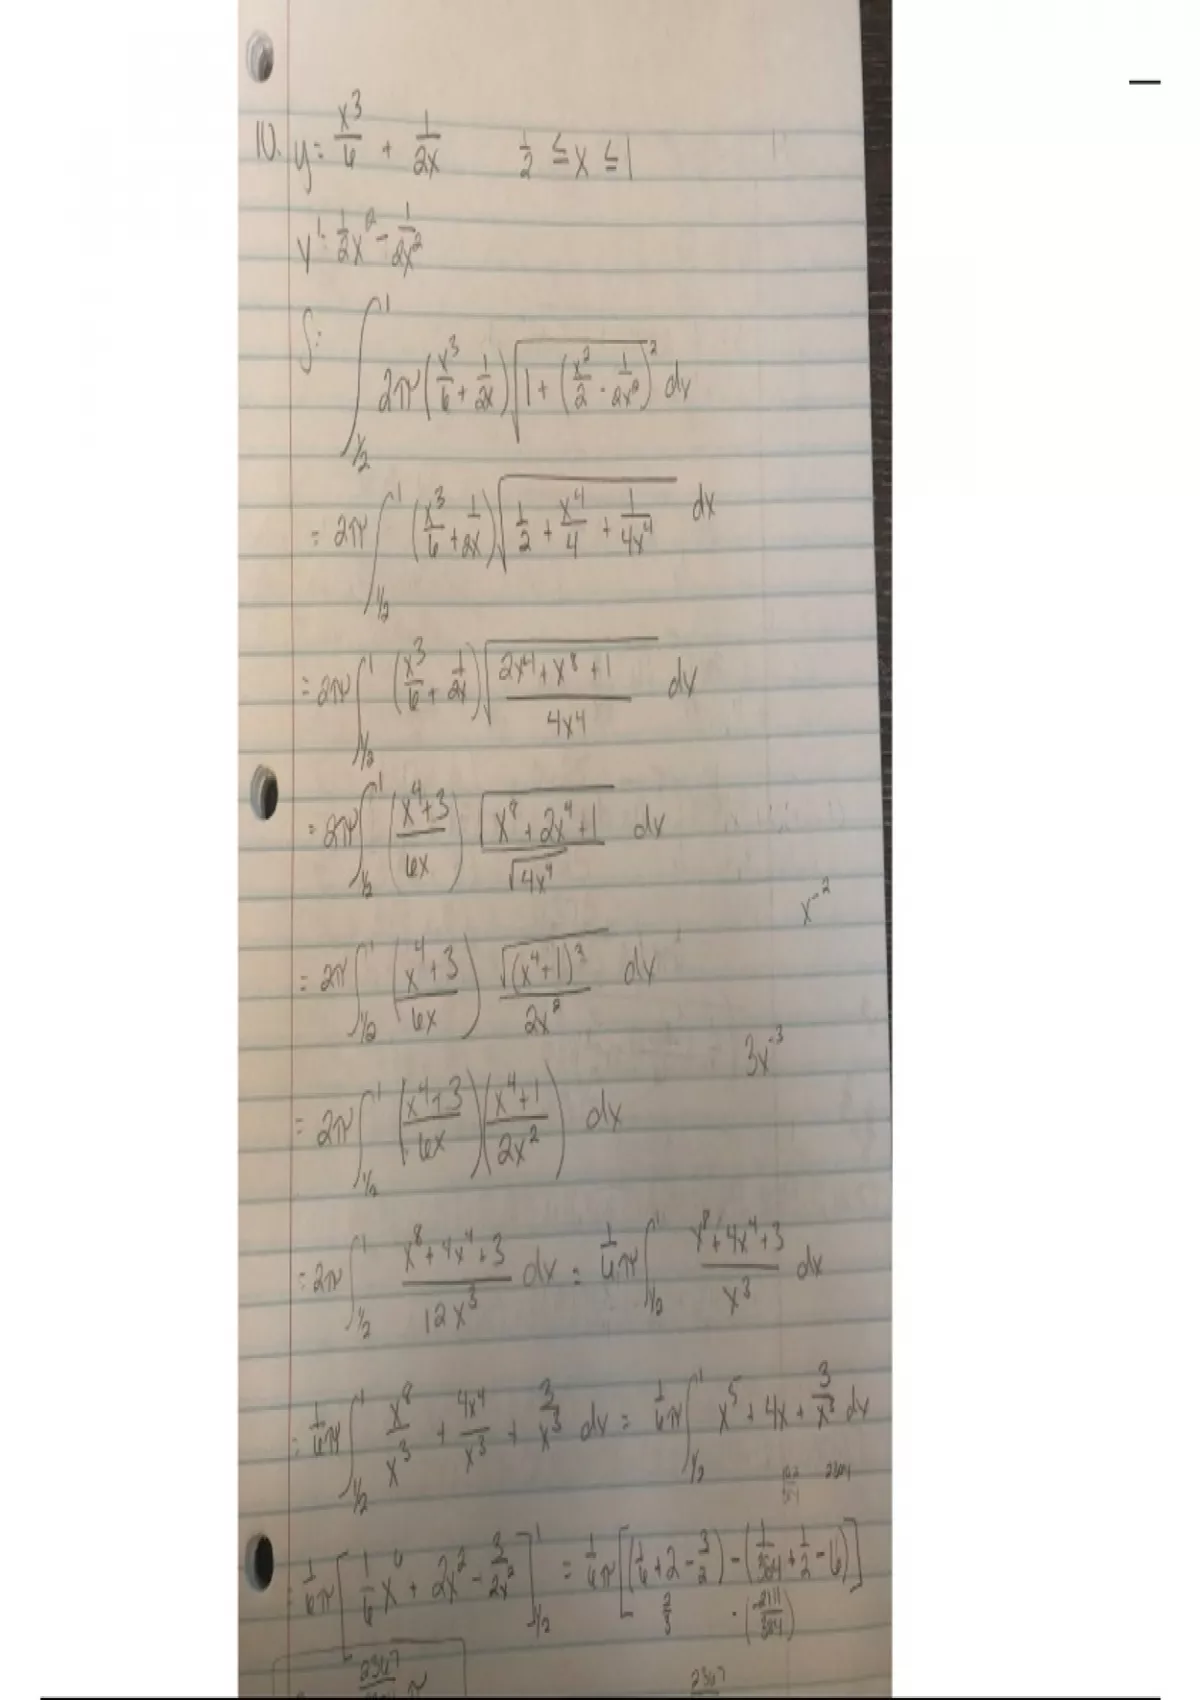 10. y = x³/6 + 1/2x    1/2 ≤ x ≤ 1
y' = 1/2 x² - 1/2x²
S = ∫_{1/2}^{1} 2π (x³/6 + 1/2x) √(1 + (x²/2 - 1/2x²)²) dx
= 2π ∫_{1/2}^{1} (x³/6 + 1/2x) √(1/2 + x⁴/4 + 1/4x⁴) dx
= 2π ∫_{1/2}^{1} (x³/6 + 1/2x) √((2x⁴ + x⁸ + 1)/4x⁴) dx
= 2π ∫_{1/2}^{1} ((x⁴+3)/6x) √(x⁸ + 2x⁴ + 1)/√(4x⁴) dx
x⁻²
= 2π ∫_{1/2}^{1} ((x⁴+3)/6x) √((x⁴+1)²)/2x² dx
3x⁻³
= 2π ∫_{1/2}^{1} ((x⁴+3)/6x) ((x⁴+1)/2x²) dx
= 2π ∫_{1/2}^{1} (x⁸ + 4x⁴ + 3)/12x³ dx = 1/6 π ∫_{1/2}^{1} (x⁸ + 4x⁴ + 3)/x³ dx
= 1/6 π ∫_{1/2}^{1} x⁸/x³ + 4x⁴/x³ + 3/x³ dx = 1/6 π ∫_{1/2}^{1} x⁵ + 4x + 3/x³ dx
2304
= 1/6 π [1/6 x⁶ + 2x² - 3/2x²]_{1/2}^{1} = 1/6 π [(1/6 + 2 - 3/2) - (1/384 + 1/2 - 6)]
2/3 - (-2111/384)
2367 π    2367